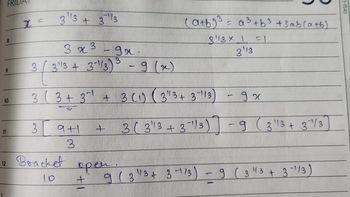 FRIDAY
x = 3^1/3 + 3^-1/3
(a+b)^3 = a^3 + b^3 + 3ab(a+b)
3^1/3 × 1/3^1/3 = 1
8
3x^3 - 9x.
9
3(3^1/3 + 3^-1/3)^3 - 9(x)
10
3[3 + 3^-1 + 3(1)(3^1/3 + 3^-1/3) - 9x
11
3[(9+1)/3 + 3(3^1/3 + 3^-1/3)] - 9(3^1/3 + 3^-1/3]
12
Bracket open.
10 + 9(3^1/3 + 3^-1/3) - 9(3^1/3 + 3^-1/3)